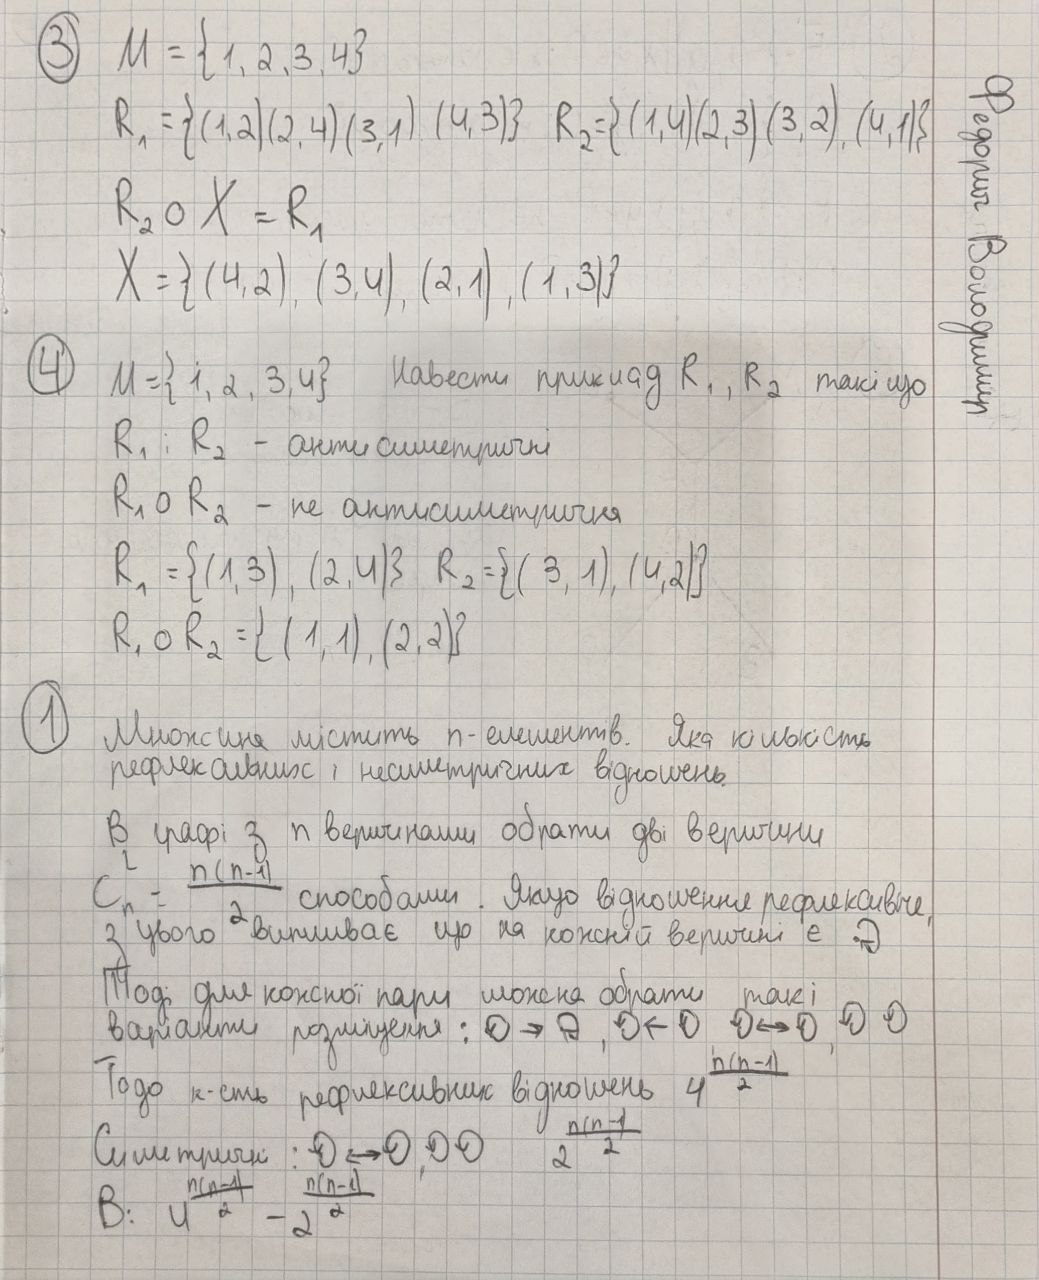 ③ M = {1, 2, 3, 4}
R₁ = {(1,2)(2,4)(3,1) (4,3)} R₂ = {(1,4)(2,3)(3,2), (4,1)}
R₂ ○ X = R₁
X = {(4,2), (3,4), (2,1), (1,3)}
④ M = {1, 2, 3, 4} Навести приклад R₁, R₂ такі що
R₁ і R₂ - антисиметричні
R₁ ○ R₂ - не антисиметрична
R₁ = {(1,3), (2,4)} R₂ = {(3,1), (4,2)}
R₁ ○ R₂ = {(1,1), (2,2)}
① Множина містить n-елементів. Яка кількість
рефлексивних і несиметричних відношень.
В графі з n вершинами обрати дві вершини
Cₙ² = n(n-1)/2 способами. Якщо відношення рефлексивне,
з цього випливає що на кожній вершині є
Тоді для кожної пари можна обрати такі
варіанти розміщення: → , ← ↔ ,
Тодо к-сть рефлексивних відношень 4^(n(n-1)/2)
Симетричні : ↔ , 2^(n(n-1)/2)
В: 4^(n(n-1)/2) - 2^(n(n-1)/2)
Федорюк Володимир